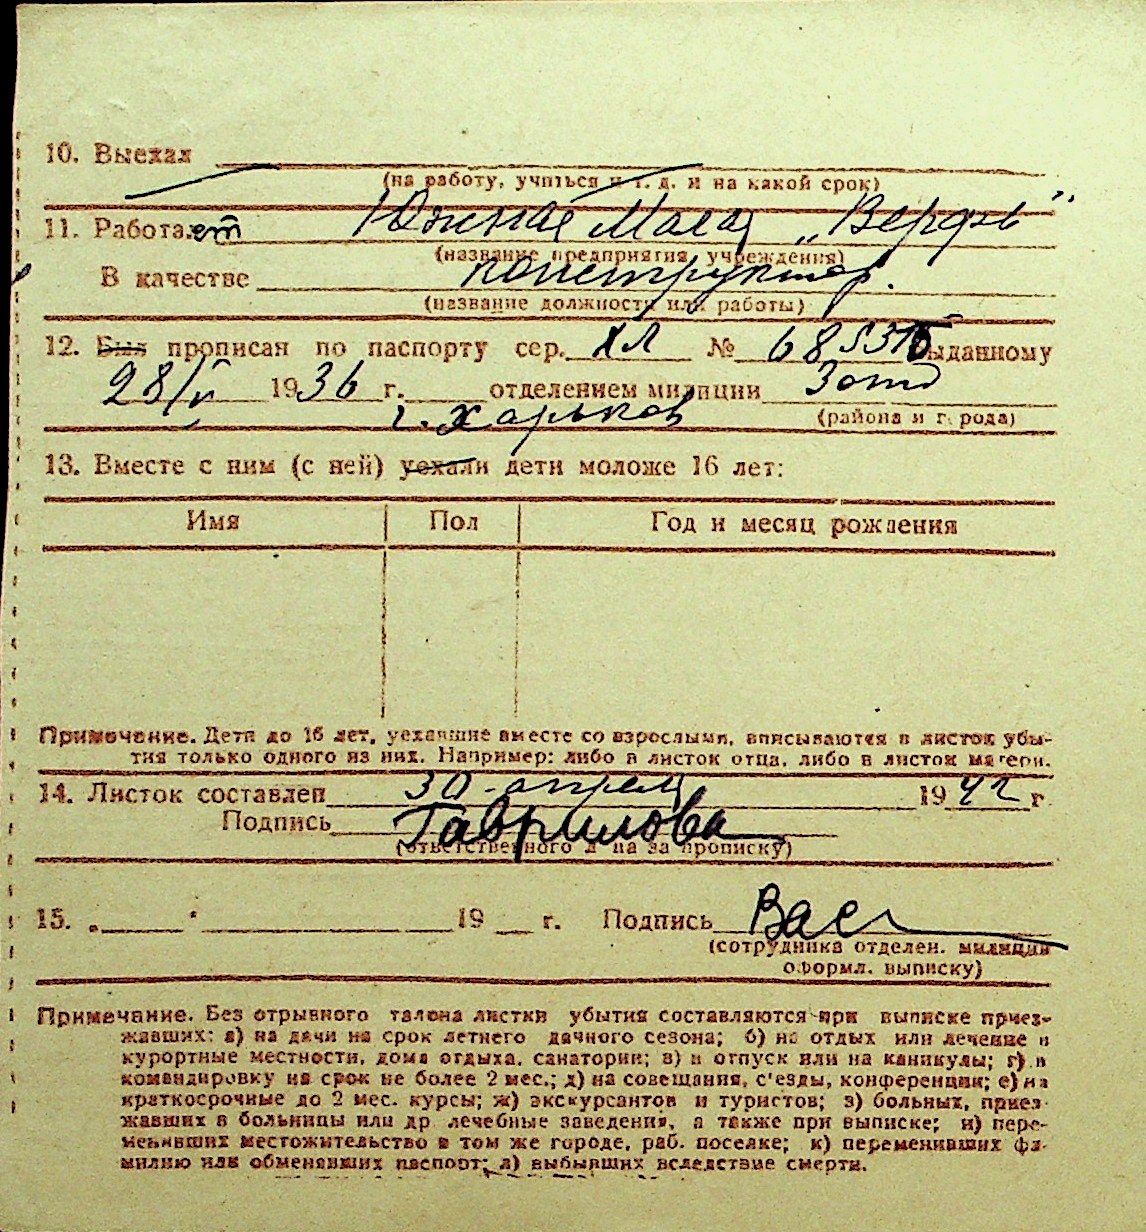 10. Выехал
(на работу, учиться и т. д. и на какой срок)
11. Работает Южная Малая „Верфь"
(название предприятия учреждения)
В качестве конструктор.
(название должности или работы)
12. Был прописан по паспорту сер. ХЛ № 685316 выданному
28/V 1936 г. отделением милиции 3 отд
г. Харьков (района и города)
13. Вместе с ним (с ней) уехали дети моложе 16 лет:
Имя Пол Год и месяц рождения
Примечание. Дети до 16 лет, уехавшие вместе со взрослыми, вписываются в листок убы-
тия только одного из них. Например: либо в листок отца, либо в листок матери.
14. Листок составлен 30 апреля 1942 г
Подпись Гаврилова
(ответственного л на за прописку)
15. „ " 19 г. Подпись Вас
(сотрудника отделен. милиции
оформл. выписку)
Примечание. Без отрывного талона листки убытия составляются при выписке приез-
жавших: а) на дачи на срок летнего дачного сезона; б) на отдых или лечение в
курортные местности, дома отдыха, санатории; в) в отпуск или на каникулы; г) в
командировку на срок не более 2 мес.; д) на совещания, с'езды, конференции; е) на
краткосрочные до 2 мес. курсы; ж) экскурсантов и туристов; з) больных, приез-
жавших в больницы или др лечебные заведения, а также при выписке; и) пере-
менивших местожительство в том же городе, раб. поселке; к) переменивших фа-
милию или обменявших паспорт; л) выбывших вследствие смерти.